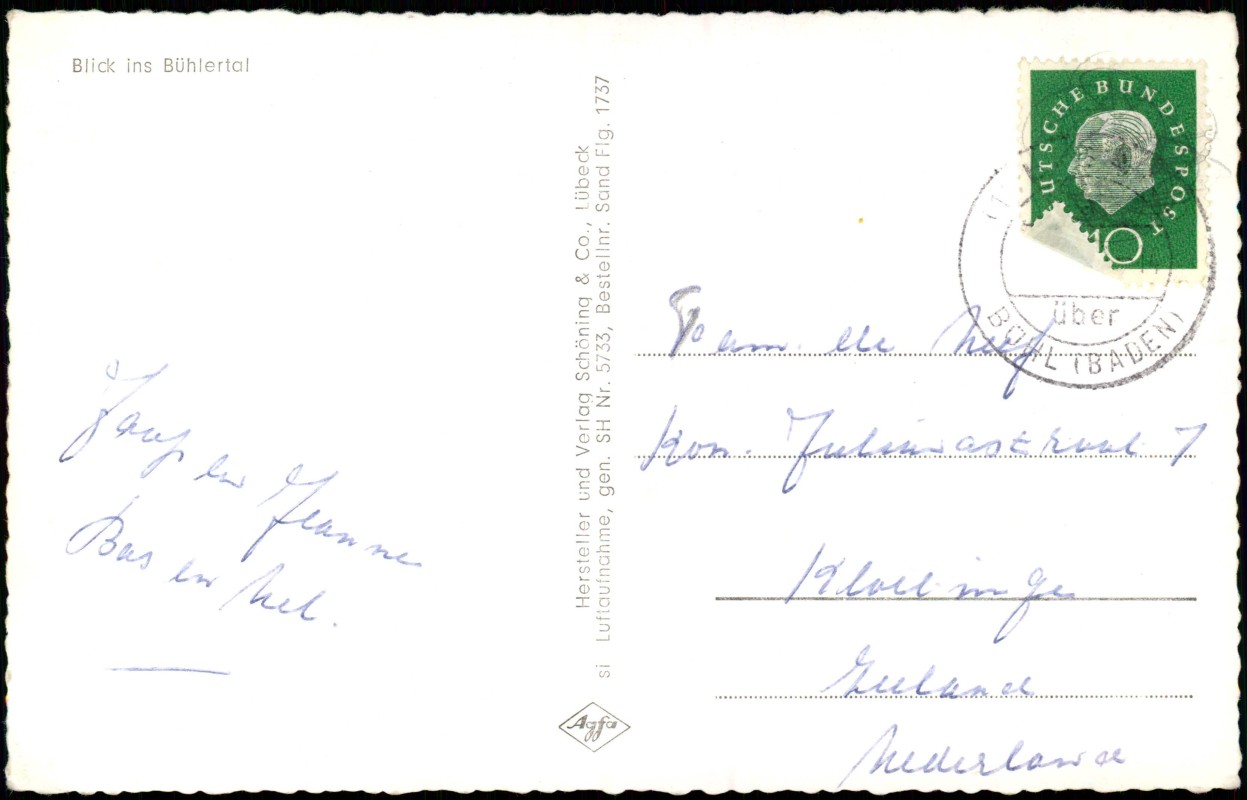 Blick ins Bühlertal
Hersteller und Verlag Schöning & Co., Lübeck
si Luftaufnahme, gen. SH Nr. 5733, Bestellnr. Sand Flg. 1737
Agfa
DEUTSCHE BUNDESPOST
10
über
BÜHL (BADEN)
Jaap en Jeanne
Bas en Nel.
Fam. de
Kon. Julianastraat 7
Kloetinge
Zeeland
Nederland